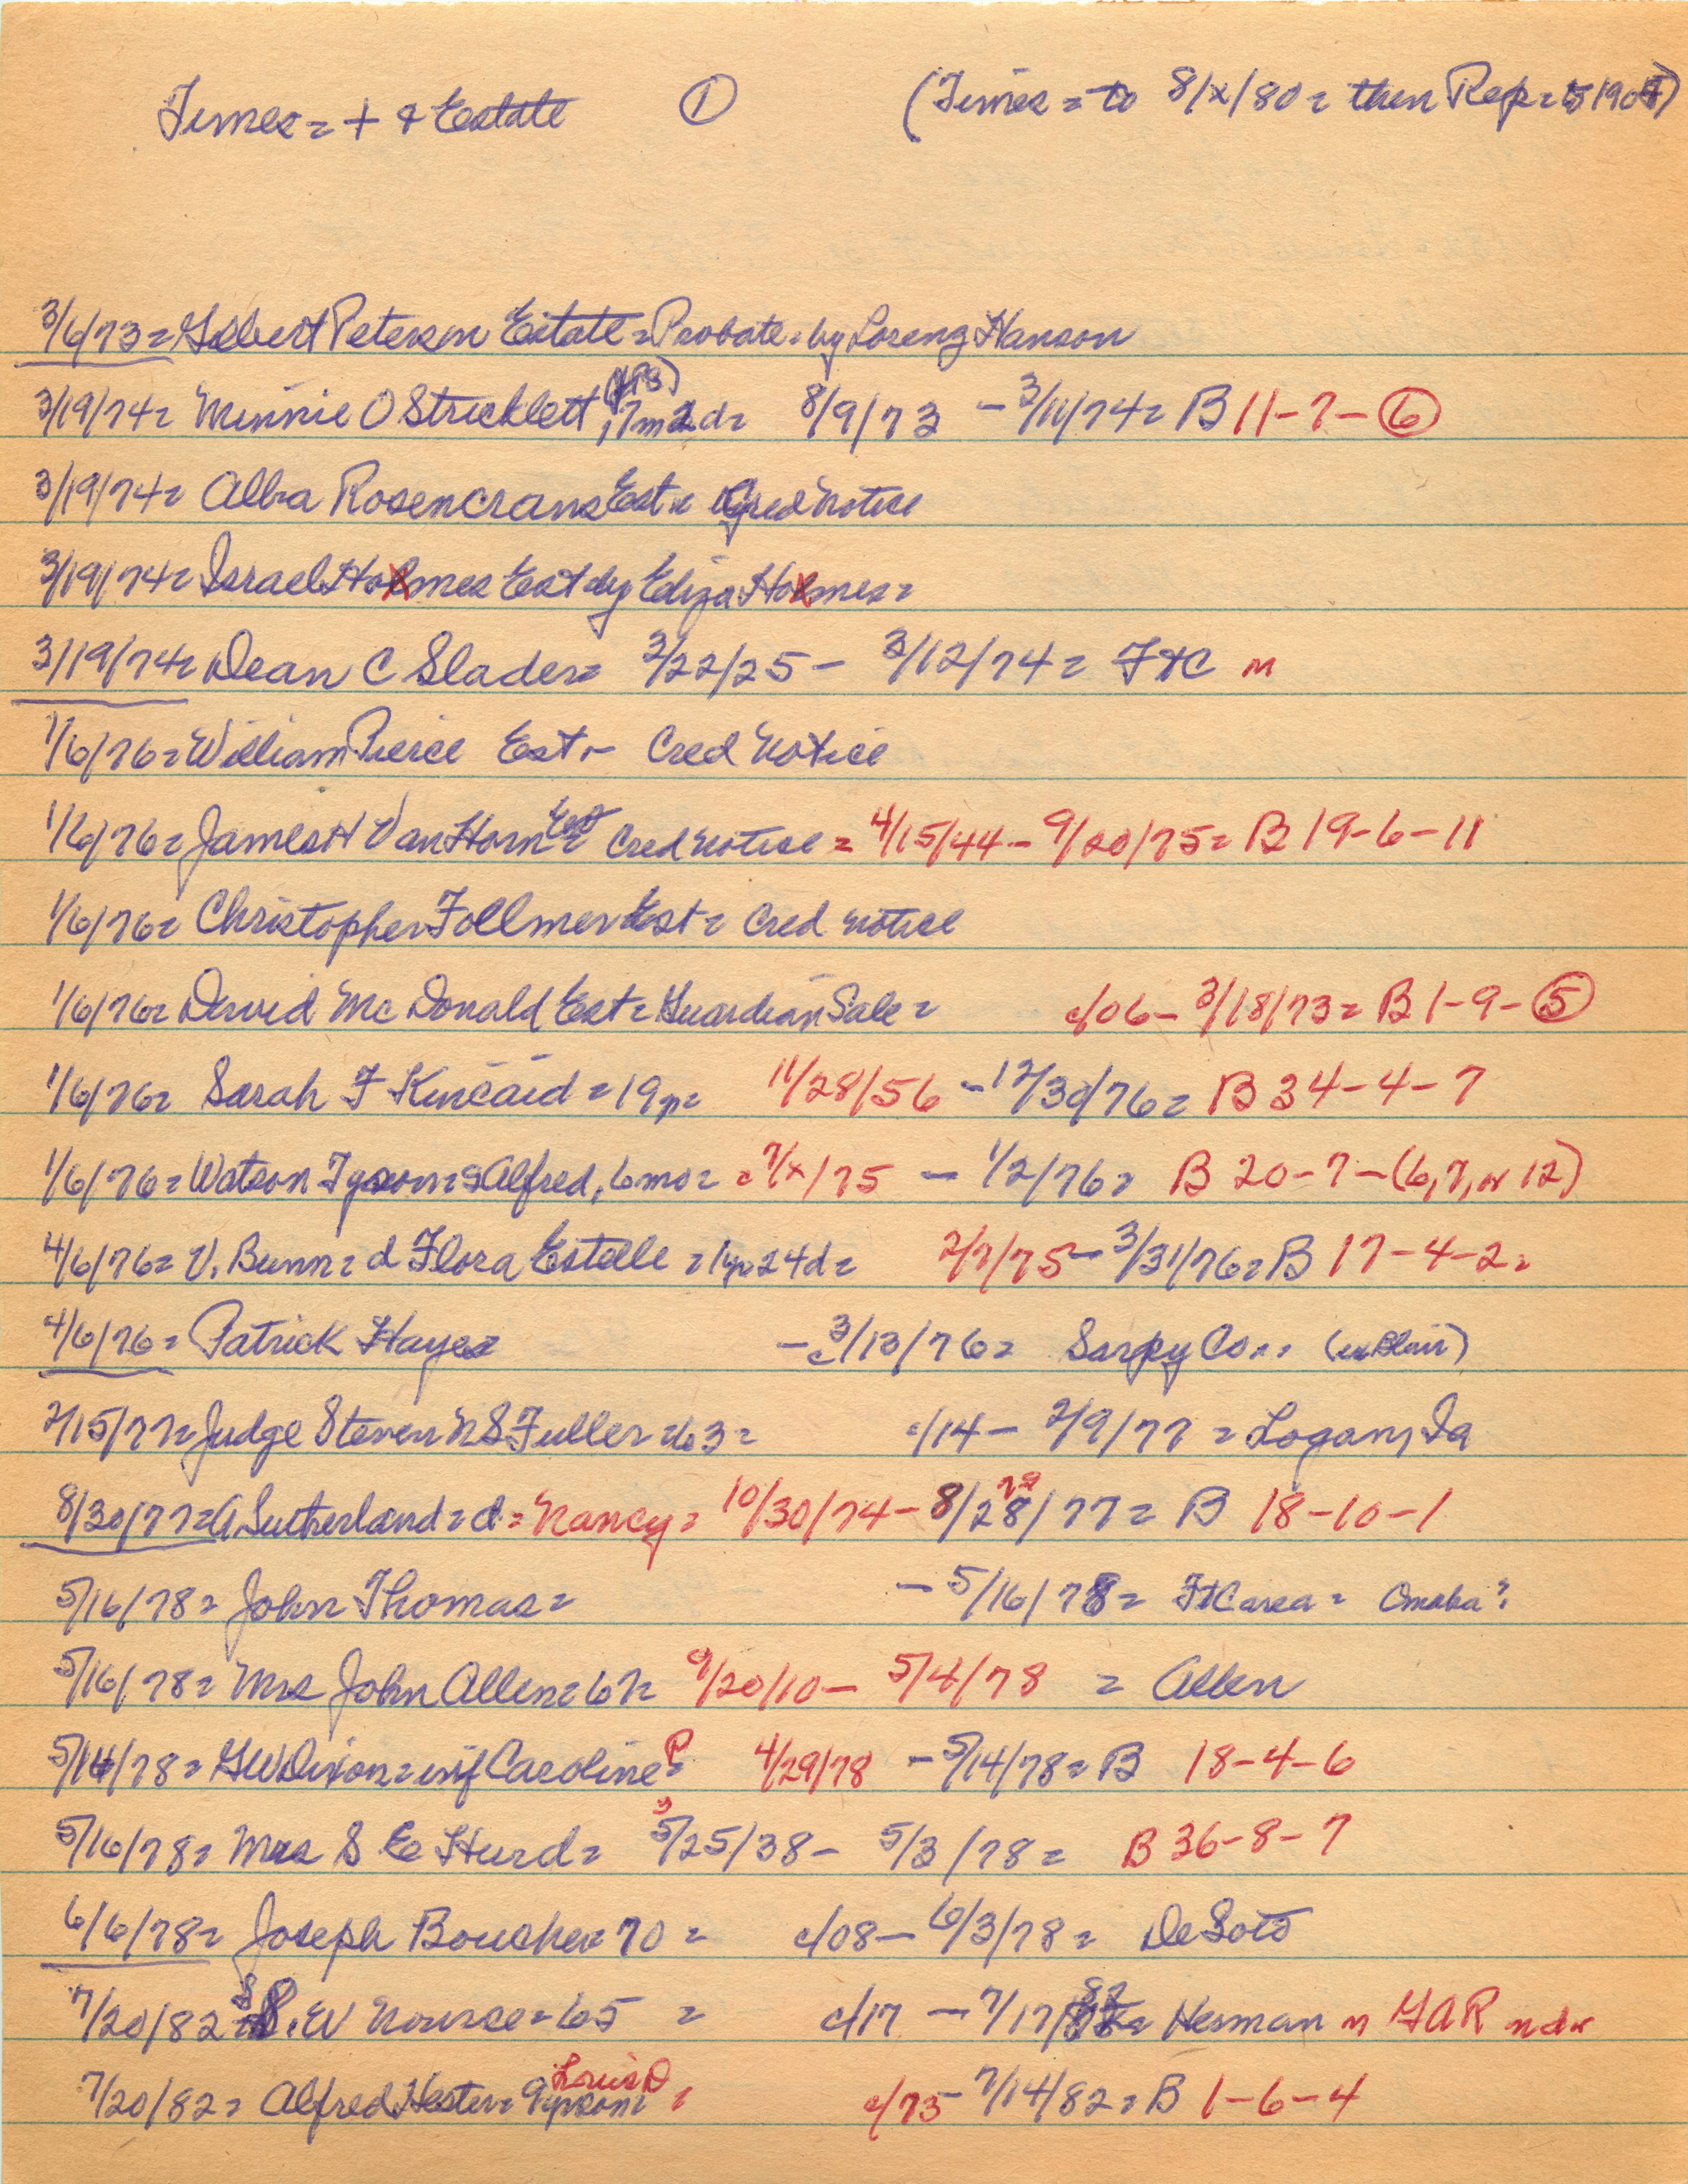 Times = + & Estate ① (Times = to 8/x/80 = then Rep = to 1904)
3/6/73 = Gilbert Petersen Estate = Probate = by Loreng Hanson
3/19/74 = Minnie O Stricklett, 7m 2d = 8/9/73 - 3/11/74 = B 11-7-⑥
3/19/74 = Alba Rosencrans Est = Cred Notice
3/19/74 = Israel Holmes Est by Eliza Holmes =
3/19/74 = Dean C Slader = 2/22/25 - 3/12/74 = FtC n
1/6/76 = William Pierce Est - Cred Notice
1/6/76 = James H Van Horn Est = Cred Notice = 4/15/44 - 9/20/75 = B 19-6-11
1/6/76 = Christopher Follmer Est = Cred Notice
1/6/76 = David Mc Donald Est = Guardian Sale = c/06 - 3/18/73 = B 1-9-⑤
1/6/76 = Sarah F Kincaid = 19y = 11/28/56 - 12/30/76 = B 34-4-7
1/6/76 = Watson Tyson = s Alfred, 6mo = = 7/x/75 - 1/2/76 = B 20-7-(6,7, or 12)
4/6/76 = V. Bunn = d Flora Estelle = 1y 24d = 2/7/75 - 3/31/76 = B 17-4-2 =
4/6/76 = Patrick Hayes - 3/13/76 = Sarpy Co = (ex Blair)
2/15/77 = Judge Steven N S Fuller = 63 = c/14 - 2/9/77 = Logan, Ia
8/30/77 = A Sutherland = d = Nancy = 10/30/74 - 8/28/77 = B 18-10-1
5/16/78 = John Thomas = - 5/16/78 = FtC area = Omaha?
5/16/78 = Mrs John Allen = 67 = 9/20/10 - 5/4/78 = Allen
5/14/78 = GW Dixon = inf Caroline P = 4/29/78 - 5/14/78 = B 18-4-6
5/16/78 = Mrs S E Hurd = 3/25/38 - 5/3/78 = B 36-8-7
6/6/78 = Joseph Boucher = 70 = c/08 - 6/3/78 = DeSoto
7/20/82 = S. W Nourse = 65 = c/17 - 7/17/82 = Herman n GAR ndx
7/20/82 = Alfred Hester = 9y son = Louis D = c/73 - 7/14/82 = B 1-6-4